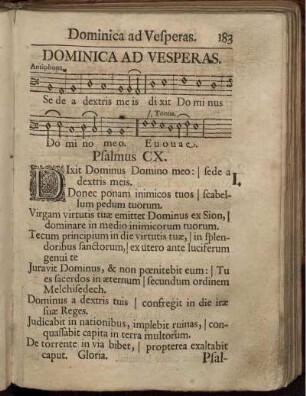 Dominica ad Vesperas. 183
DOMINICA AD VESPERAS.
Antiphona.
Se de a dextris me is di xit Do mi nus
1. Tonus.
Do mi no me o. E u o u a e.
Psalmus CX.
DIxit Dominus Domino meo: | sede a
dextris meis. I.
Donec ponam inimicos tuos | scabel-
lum pedum tuorum.
Virgam virtutis tuæ emittet Dominus ex Sion, |
dominare in medio inimicorum tuorum.
Tecum principium in die virtutis tuæ, | in splen-
doribus sanctorum, | ex utero ante luciferum
genui te
Juravit Dominus, & non pœnitebit eum: | Tu
es sacerdos in æternum | secundum ordinem
Melchisedech.
Dominus a dextris tuis | confregit in die iræ
suæ Reges.
Judicabit in nationibus, implebit ruinas, | con-
quassabit capita in terra multorum.
De torrente in via bibet, | propterea exaltabit
caput. Gloria. Psal-